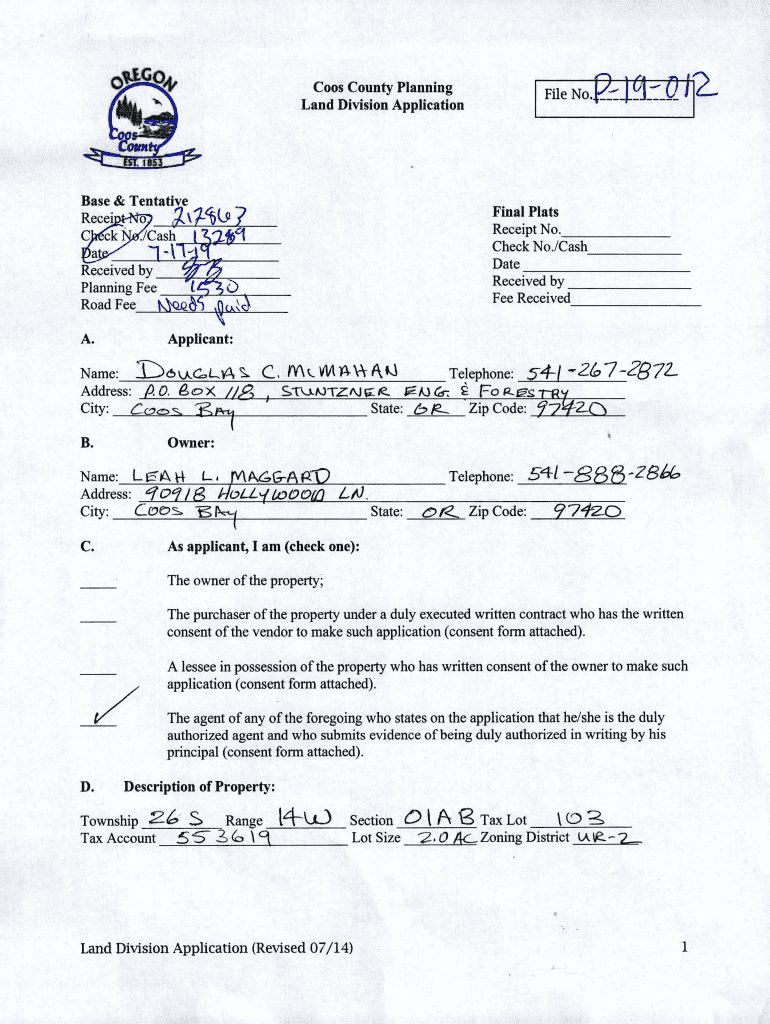 OREGON
Coos
County
EST. 1853
Coos County Planning
Land Division Application
File No. P-19-012
Base & Tentative
Receipt No. 212863
Check No./Cash 13289
Date 7-17-19
Received by
Planning Fee 1530
Road Fee Needs paid
Final Plats
Receipt No.
Check No./Cash
Date
Received by
Fee Received
A. Applicant:
Name: DOUGLAS C. McMAHAN Telephone: 541-267-2872
Address: P.O. BOX 118, STUNTZNER ENG. & FORESTRY
City: COOS BAY State: OR Zip Code: 97420
B. Owner:
Name: LEAH L. MAGGARD Telephone: 541-888-2866
Address: 90918 HOLLYWOOD LN.
City: COOS BAY State: OR Zip Code: 97420
C. As applicant, I am (check one):
The owner of the property;
The purchaser of the property under a duly executed written contract who has the written
consent of the vendor to make such application (consent form attached).
A lessee in possession of the property who has written consent of the owner to make such
application (consent form attached).
✓ The agent of any of the foregoing who states on the application that he/she is the duly
authorized agent and who submits evidence of being duly authorized in writing by his
principal (consent form attached).
D. Description of Property:
Township 26 S Range 14W Section 01AB Tax Lot 103
Tax Account 553619 Lot Size 2.0 AC Zoning District UR-2
Land Division Application (Revised 07/14) 1